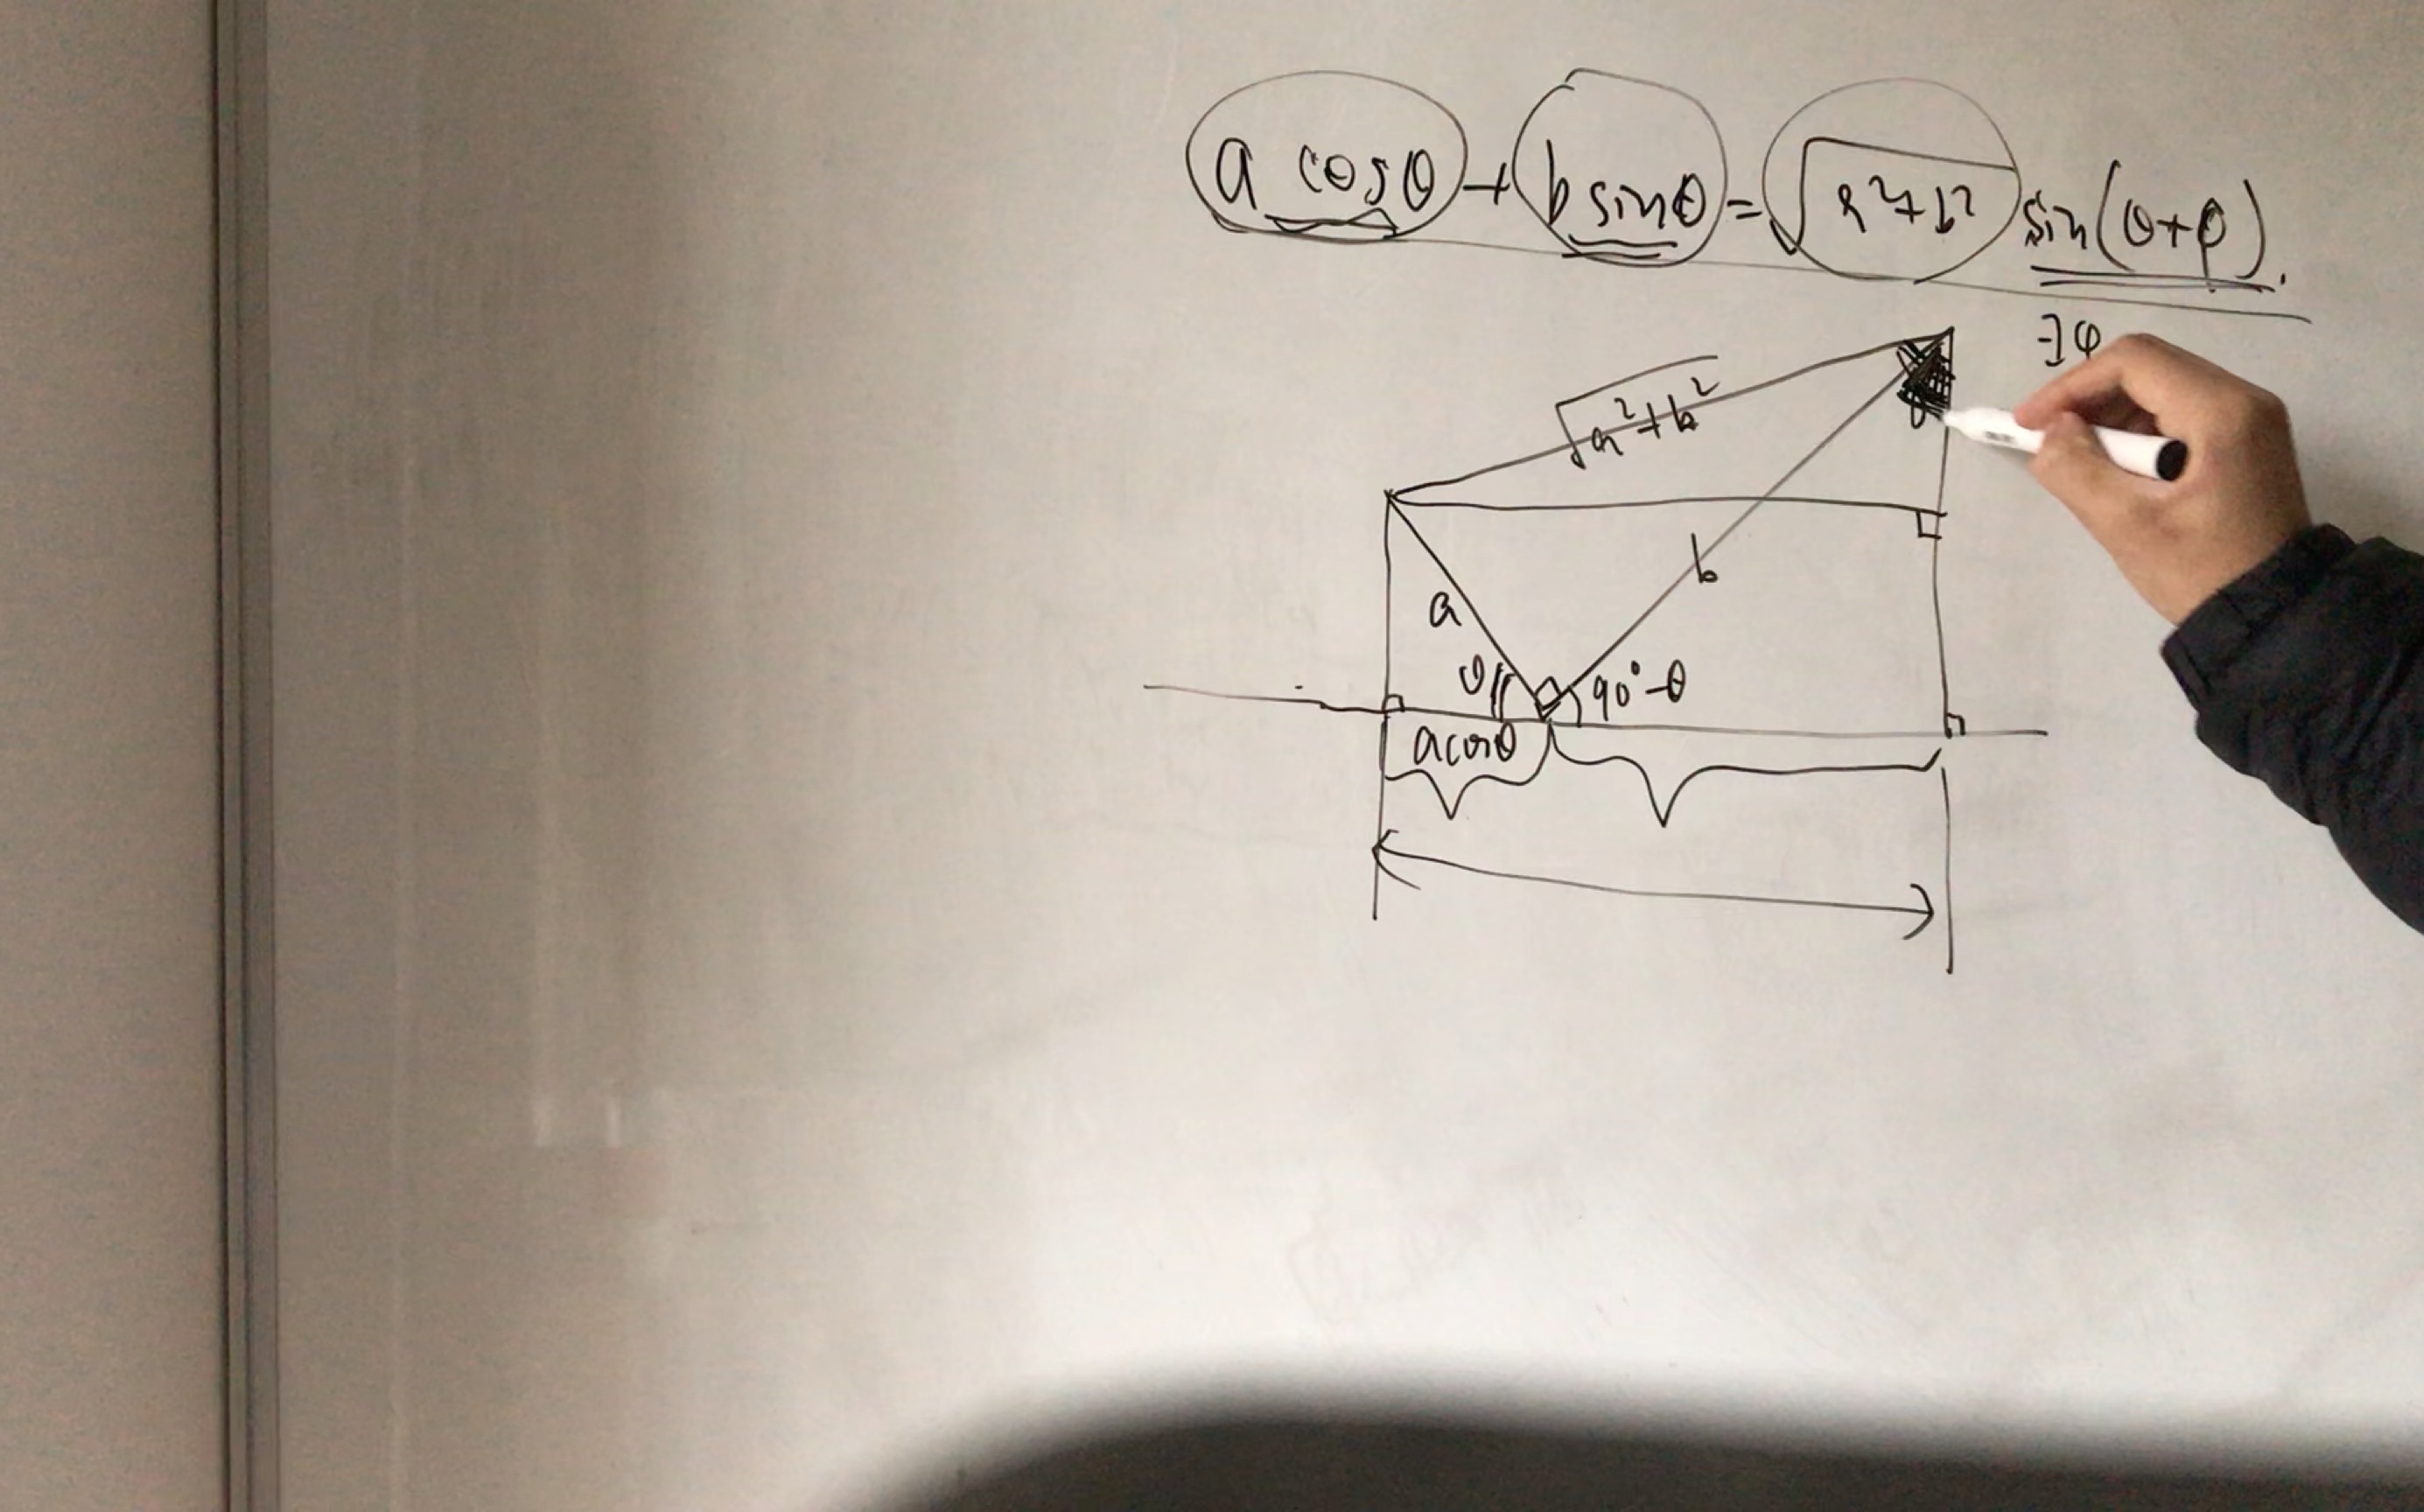 a cosθ + b sinθ = √a²+b² sin(θ+φ).
∃φ
√a²+b²
b
a
θ
90°-θ
acosθ